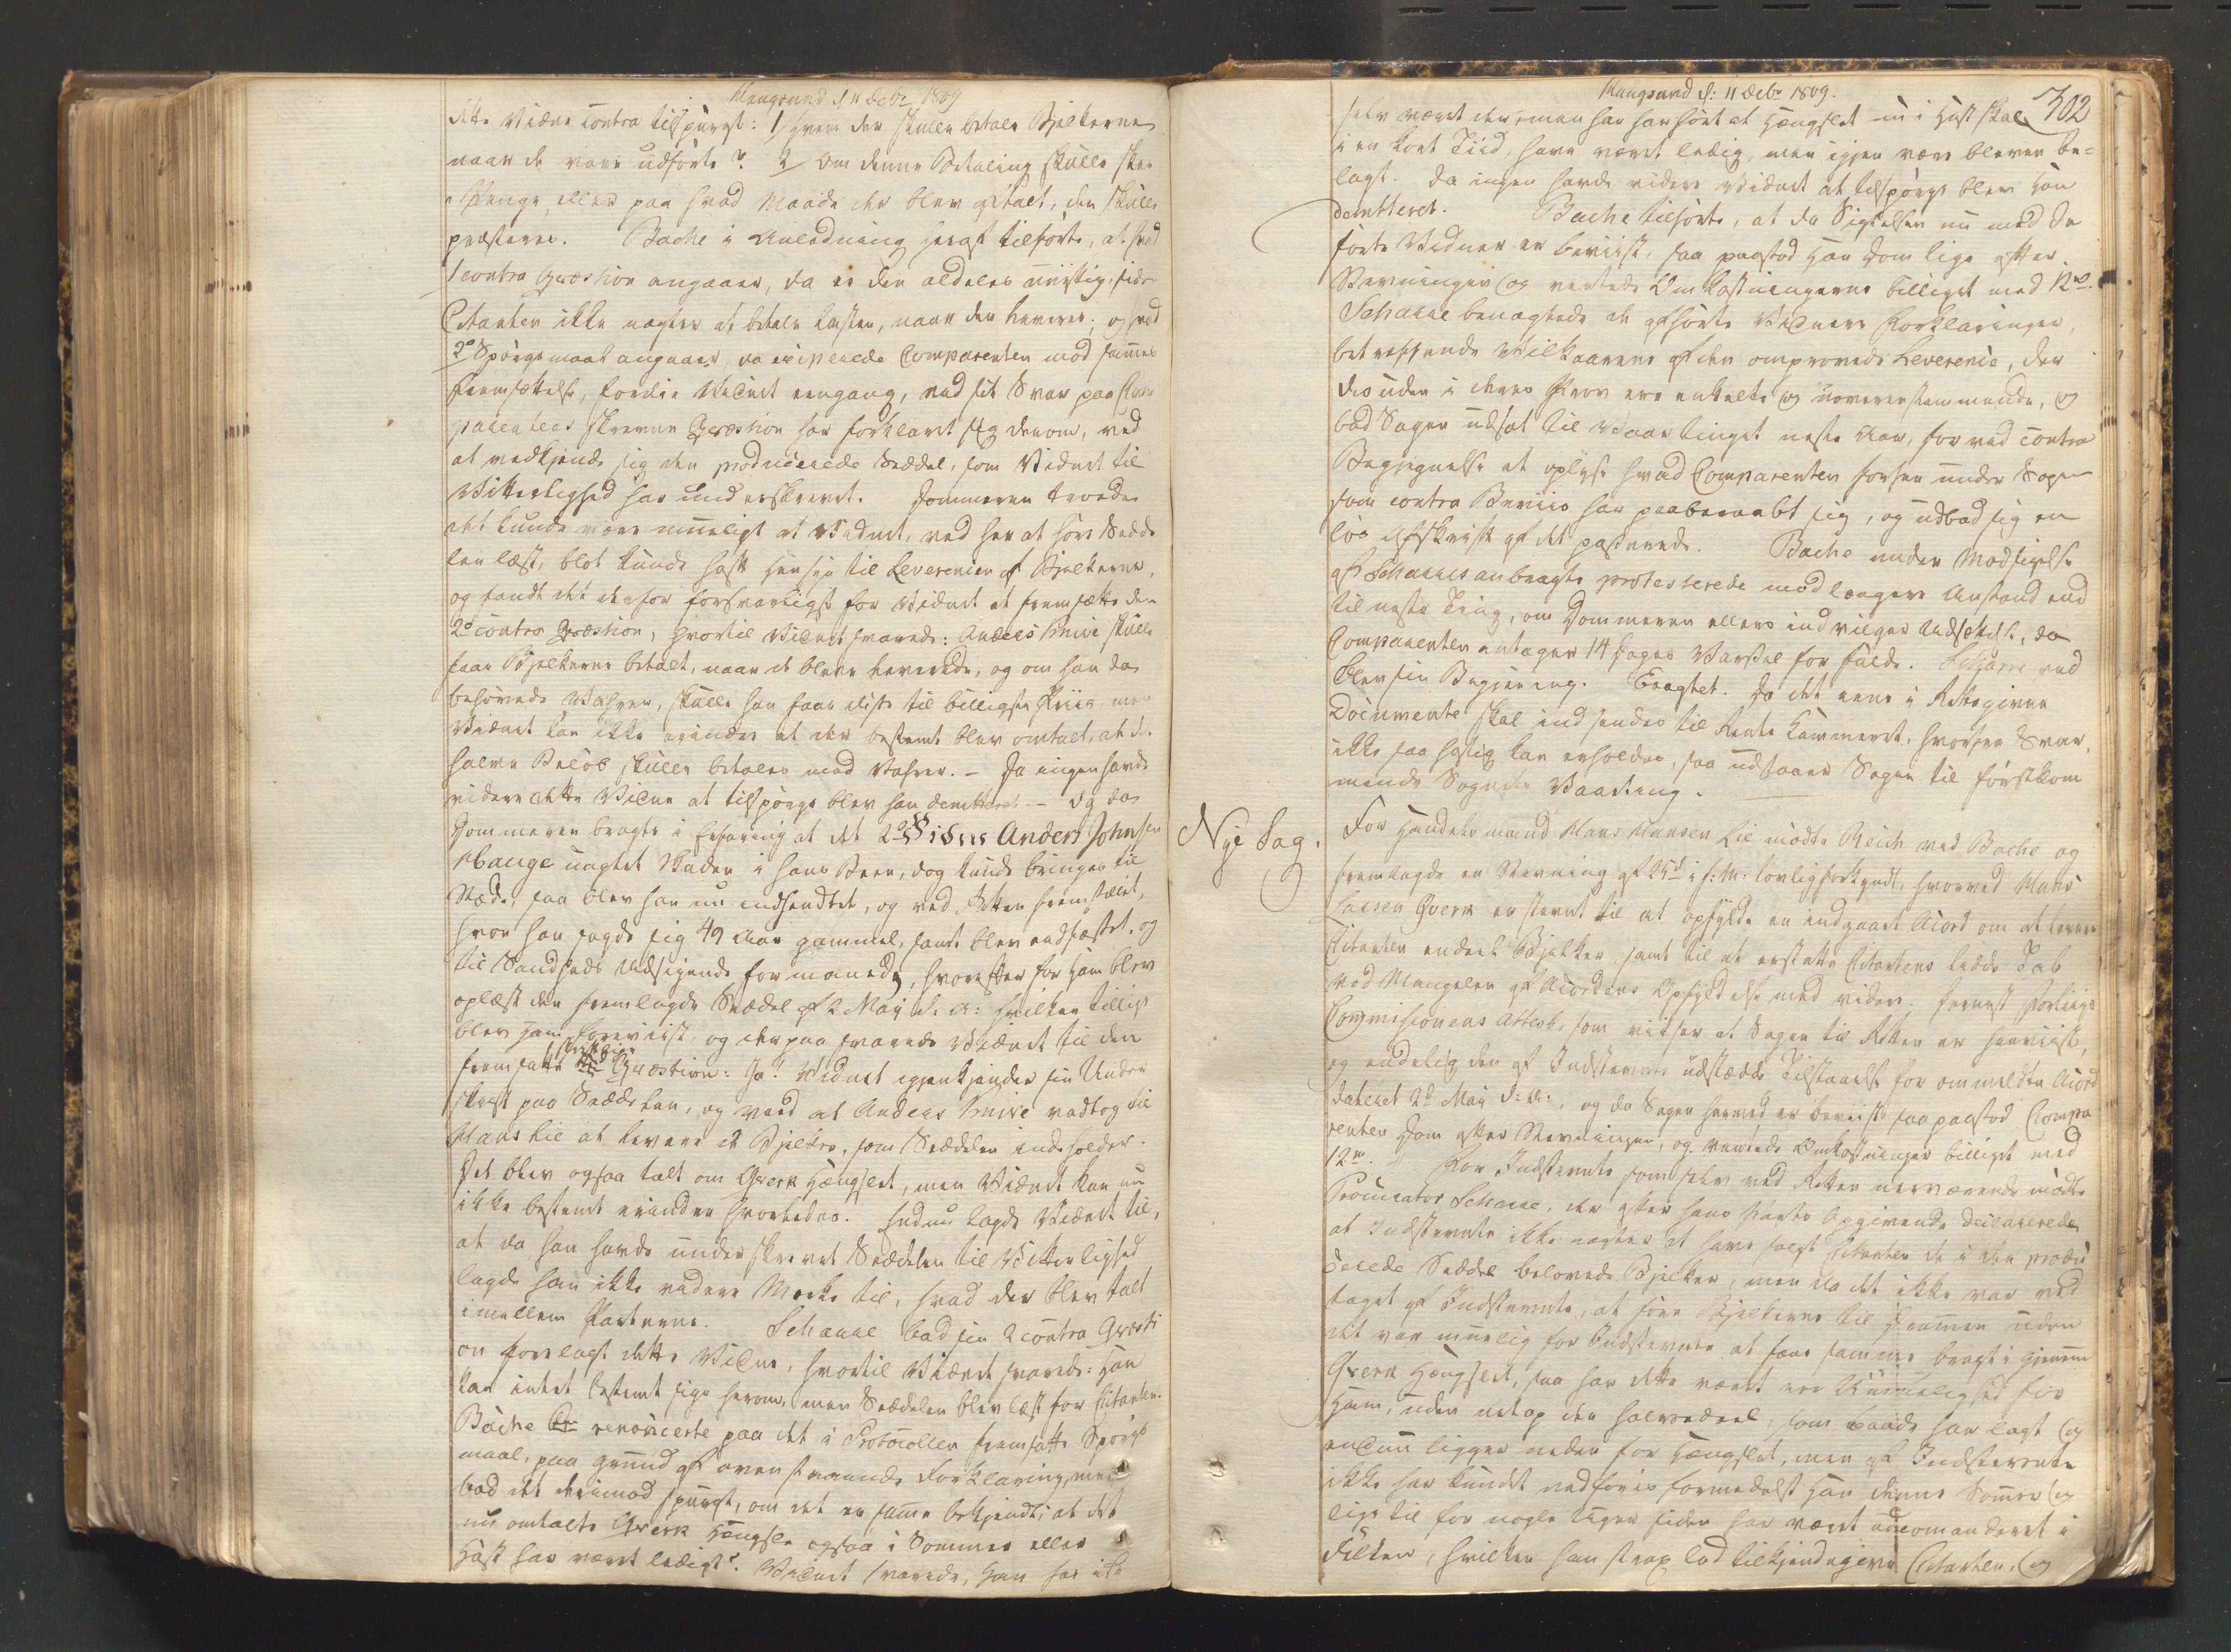 Haugsund d 11 Decbr 1809
dette Vidne contra tilspurgt: 1/ Hvem der skulle betale Bjelkerne
naar de vare udførte? 2/ Om denne Betaling skulle skee
i Penge, eller paa hvad Maade der blev aftalt, den skulle
præsteres. Bache i Anledning heraf tilførte, at hvad
1 contra Qvæstion angaaer, da er den aldeles unyttig, siden
Citanten ikke nægter at betale Lasten, naar den leveres; og hvad
2o Spørgsmaal angaaer, da exiperede Comparenten mod sammes
Fremsættelse, fordie Vidnet eengang, ved sit Svar paa Com
parentens skrevne Qvæstion har forklaret sig derom, ved
at vedkjende sig den producerede Seddel, som Vidnet til
Vitterlighed har underskrevet. Dommeren troede
det kunde være mueligt at Vidnet, ved her at høre Sedde
len læst, blot kunde haft Hensyn til Leverencen af Bjelkerne,
og fandt det derfor forsvarligst for Vidnet at fremsætte den
2o contra Qvæstion, hvortil Vidnet svarede: Anders Smive skulle
faae Bjelkerne betalt, naar de bleve leverede, og om han da
behøvede Vahrer, skulle han faae disse til billigste Priis, men
Vidnet kan ikke erindre at der bestemt blev omtalt, at det
halve Beløb skulle betales med Vahrer. – Da ingen havde
videre dette Vidne at tilspørge blev han demitteret. – Og da
Dommeren bragte i Erfaring at det 2o Vidne Anders Johnsen
Hauge uagtet Skaden i hans Been, dog kunde bringes til
Stæde, saa blev han nu indhendtet, og ved Retten fremstillet,
hvor han sagde sig 49 Aar gammel, samt blev eedfæstet, og
til Sandheds Udsigende formanede, hvorefter for ham blev
oplæst den fremlagde Seddel af 2 May d: A: hvilken tillige
blev ham foreviist, og derpaa svarede Vidnet til den
fremsatte skrevne Qvæstion: Ja! Vidnet igjenkjender sin Under
skrift paa Seddelen, og veed at Anders Smive vedtog til
Hans Lie at levere de Bjelker, som Seddelen indeholder.
Det blev ogsaa talt om Qverk Hængslet, men Vidnet kan nu
ikke bestemt erindre hvorledes. Endnu lagde Vidnet til,
at da han havde underskrevet Seddelen til Vitterlighed
lagde han ikke videre Mærke til, hvad der blev talt
imellem Parterne. Schanne bad sin 2 contra Qvæsti
on forelagt dette Vidne, hvortil Vidnet svarede: Han
kan intet bestemt sige herom, men Seddelen blev læst for Citanten.
Bache renoncerte paa det i Protocollen fremsatte Spørgs
maal, paa Grund af ovenstaaende Forklaring, men
bad det derimod spurgt, om det er samme bekjendt, at det
nu omtalte Qverk Hængsle ogsaa i Sommer eller
Høst har været ledigt? Vidnet svarede, Han har ikke
Haugsund d: 11 Decbr 1809.
302
selv været der, men han har hørt at Hængslet nu i Høst skal
i en kort Tiid, have været ledig, men igjen være bleven be=
lagt. Da ingen havde videre Vidnet at tilspørge blev Han
demitteret. Bache tilførte, at da Sigtelsen nu med de
førte Vidner er beviist, saa paastod Han Dom lige efter
Stevningen og ventede Omkostningerne billiget med 12 rd.
Schanne benægtede de afhørte Vidners Forklaringer,
betreffende Vilkaarene af den omprovede Leverence, der
desuden i deres Prov ere enkelte og uovereenstemmende, og
bad Sagen udsat til Vaartinget neste Aar, for ved contra
Begegnelse at oplyse hvad Comparenten forhen under Sagen
som contra Beviis har paaberaabt sig, og udbad sig en
løs Afskrivt af det passerede. Bache under Modsigelse
af Schannes anbragte protesterede mod længere Anstand end
til neste Ting, om Dommeren ellers indvilger Udsættelse, da
Comparenten antager 14 Dages Varsel for fulde. Schanne ved
blev sin Begjering. Eragtet. Da det eene i Rette given
Documente skal indsendes til Rente Kammeret, hvorfra Svar,
ikke saa hastig kan erholdes, saa udstaaer Sagen til førstkom
mende Sognets Vaarting.
Nye Sag. For Handelsmand Hans Hansen Lie mødte Reich ved Bache og
fremlagde en Stevning af 25d i f: M: lovlig forkyndt, hvorved Hans
Larsen Qverk er stevnt til at opfylde en indgaaet Acord om at levere
Citanten endeel Bjelker samt til at erstatte Citantens lidde Tab
ved Mangelen af Acordens Opfyldelse med videre. Fernest Forligs
Commisionens Attest, som viiser at Sagen til Retten er henviist,
og endelig den af Indstevnte udstædde Tilstaaelse for ommeldte Acord
dateret 2d May d: A:, og da Sagen hermed er beviist saa paastod Compa
renten Dom efter Stevningen, og ventede Omkostninger billiget med
12 rd. For Indstevnte som selv ved Retten nerværende mødte
Procurator Schanne, der efter hans Parts Opgivende declarerede
at Indstevnte ikke nægter at have solgt Citanten de i den produ
cerede Seddel belovede Bjelker, men da det ikke var ved
taget af Indstevnte, at føre Bjelkerne til Drammen uden
det var muelig for Indstevnte at faae samme bragt i gjennem
Qverk Hængslet, saa har dette været een Umuelighed for
Ham, uden netop den halvedeel, som baade har lagt og
endnu ligger neden for Hængslet, men af Indstevnte
ikke har kundet nedføres formedelst Han denne Sommer og
lige til for nogle Uger siden har været udcomanderet i
Felten, hvilken han strax lod tilkjendegive Citanten, og